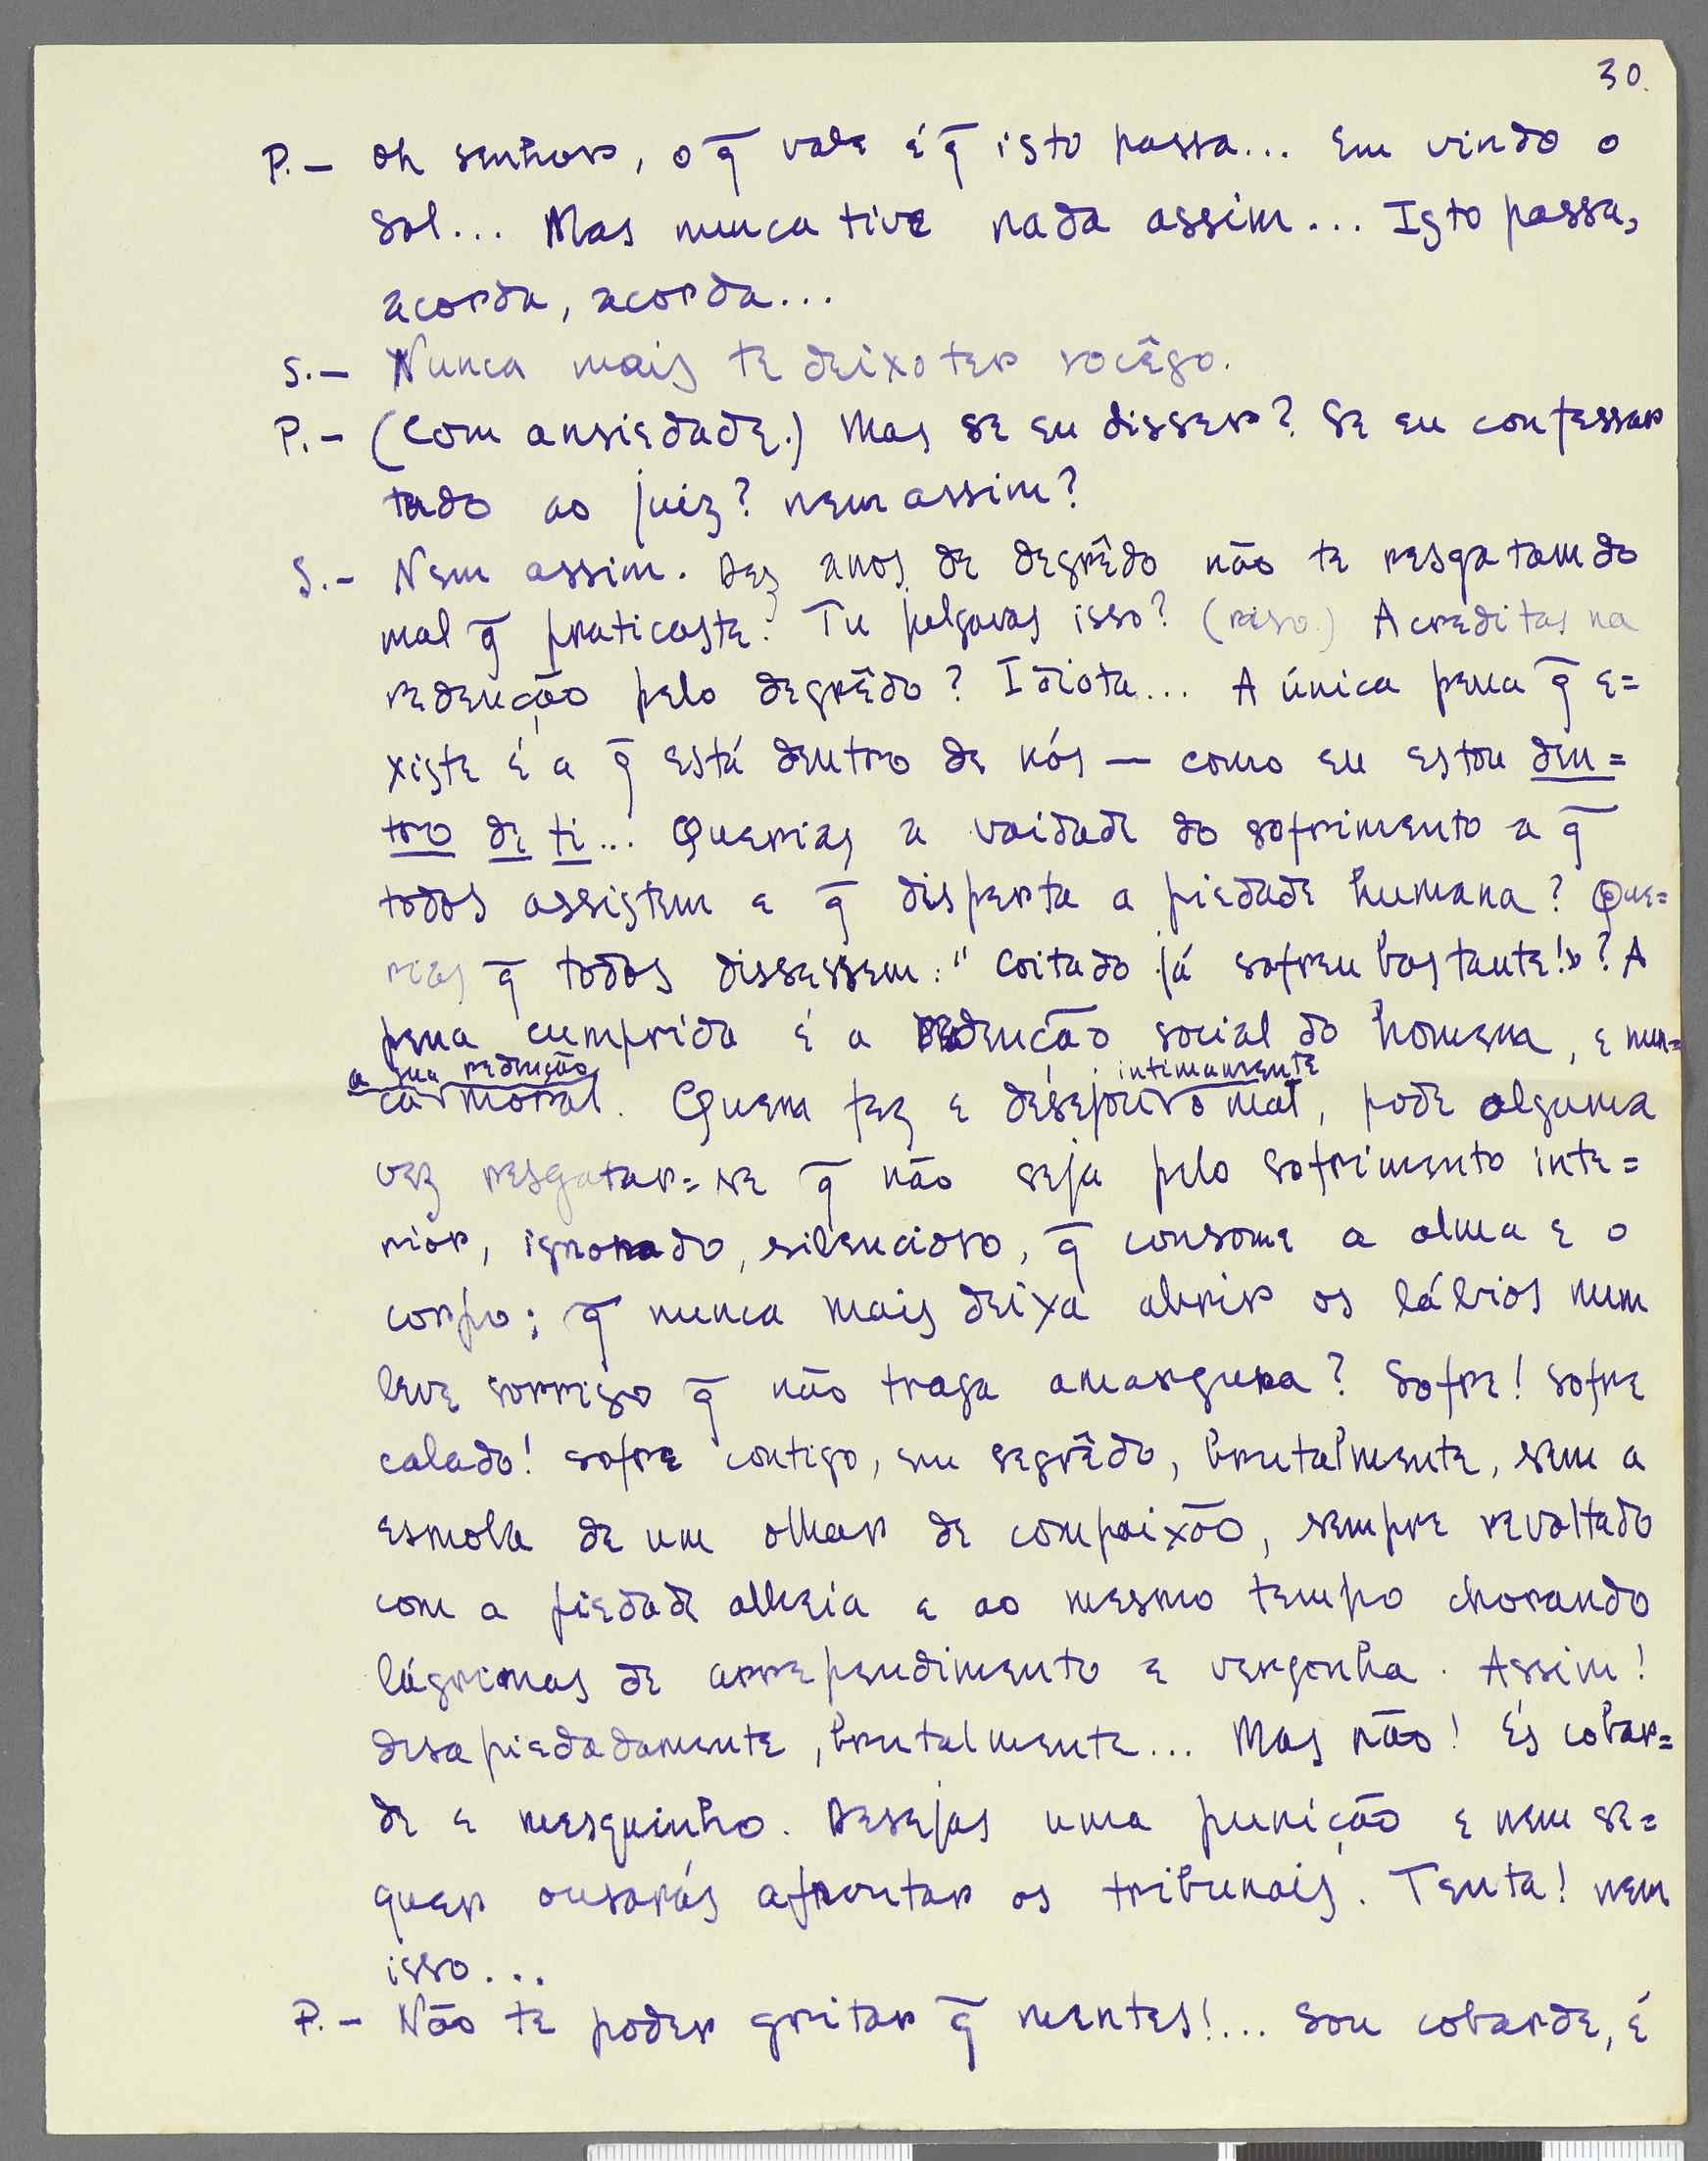 30.
P. — Oh senhor, o q̃ vale é q̃ isto passa... Em vindo o
sol... Mas nunca tive nada assim... Isto passa,
acorda, acorda...
S. — Nunca mais te deixo ter socêgo.
P. — (Com ansiedade.) Mas se eu disser? Se eu confessar
tudo ao juiz? nem assim?
S. — Nem assim. Dez anos de degrêdo não te resgatam do
mal q̃ praticaste. Tu julgavas isso? (riso.) Acreditas na
redenção pelo degrêdo? Idiota... A única pena q̃ e=
xiste é a q̃ está dentro de nós — como eu estou den=
tro de ti... Querias a vaidade do sofrimento a q̃
todos assistem e q̃ disperta a piedade humana? Que=
rias q̃ todos dissessem: "Coitado já sofreu bastante!»? A
pena cumprida é a redenção social do homem, e nun=
a sua redenção intimamente
ca moral. Quem fez e desejou o mal, pode alguma
vez resgatar=se q̃ não seja pelo sofrimento inte=
rior, ignorado, silencioso, q̃ consome a alma e o
corpo; q̃ nunca mais deixa abrir os lábios num
leve sorriso q̃ não traga amargura? Sofre! Sofre
calado! Sofre contigo, em segrêdo, brutalmente, sem a
esmola de um olhar de compaixão, sempre revoltado
com a piedade alheia e ao mesmo tempo chorando
lágrimas de arrependimento e vergonha. Assim!
desapiedadamente, brutalmente... Mas não! És cobar=
de e mesquinho. Desejas uma punição e nem se=
quer ousarás afrontar os tribunais. Tenta! nem
isso...
P. — Não te poder gritar q̃ mentes!... Sou cobarde, é